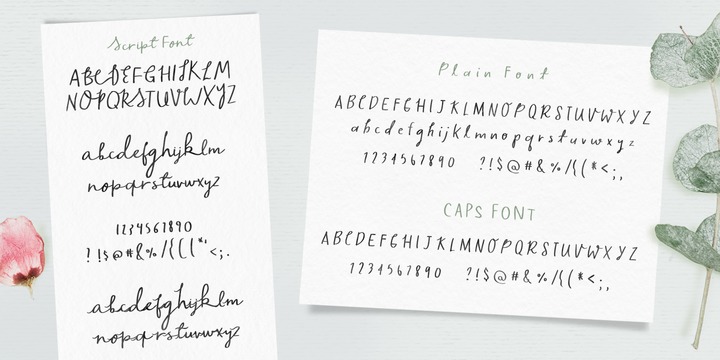 Script Font
ABCDEFGHIJKLM
NOPQRSTUVWXYZ
abcdefghijklm
nopqrstuvwxyz
1234567890
?!$@#&%/{(("'<;.
abcdefghijklm
nopqrstuvwxyz
Plain Font
ABCDEFGHIJKLMNOPQRSTUVWXYZ
abcdefghijklmnopqrstuvwxyz
1234567890 ?!$@#&%/{(*<;,
CAPS FONT
ABCDEFGHIJKLMNOPQRSTUVWXYZ
1234567890 ?!$@#&%/{(*<;,